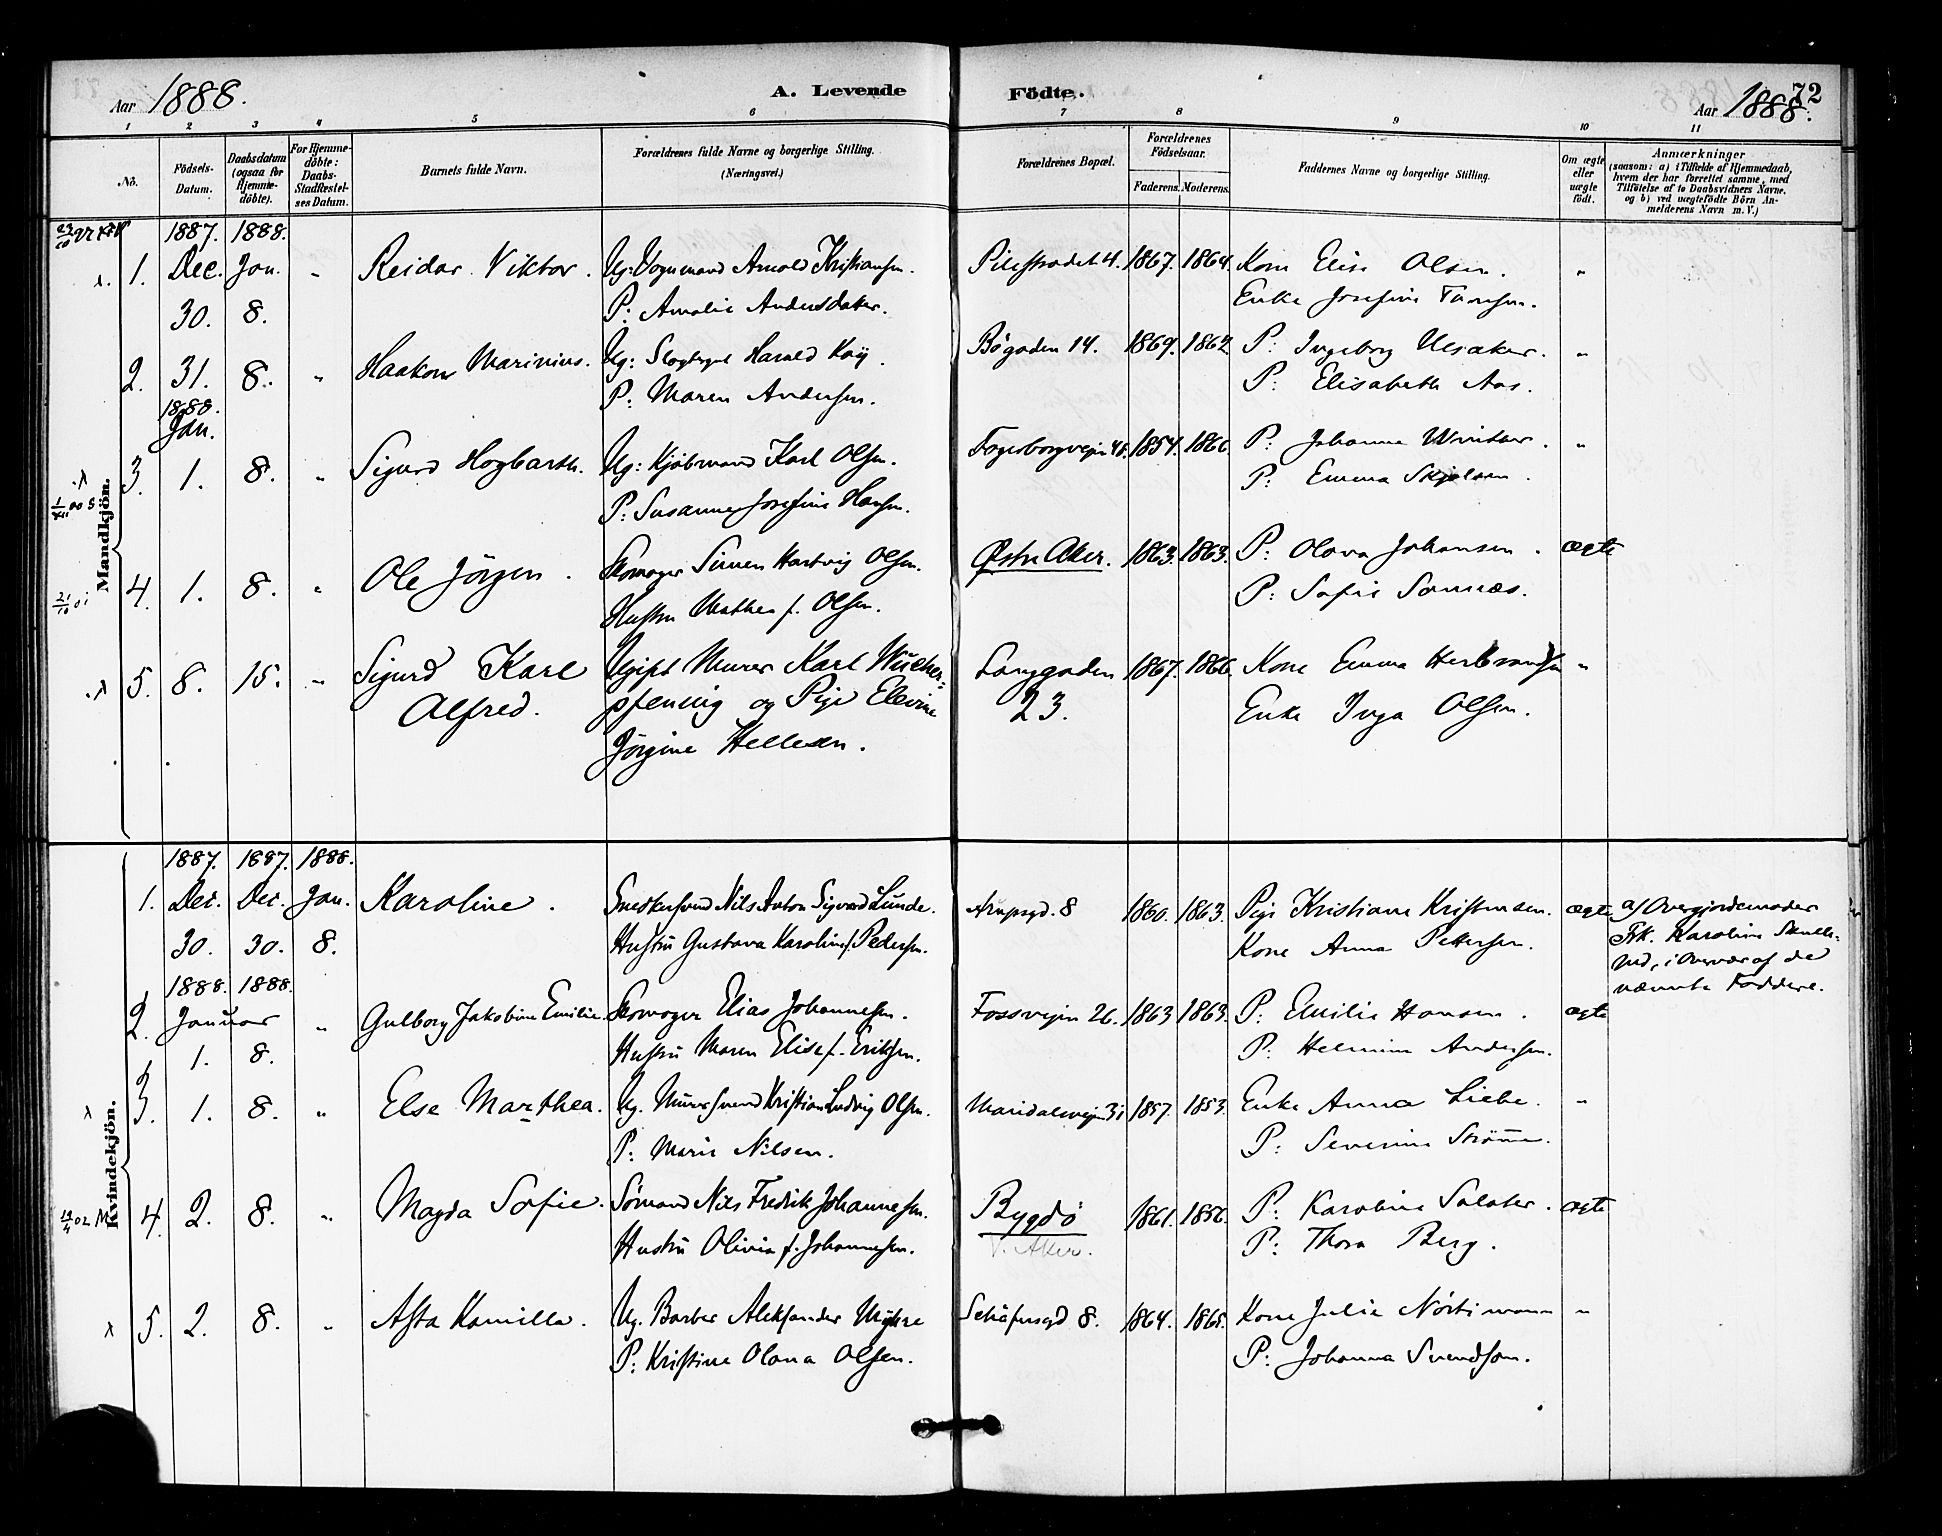 Aar 1888. A. Levende Födte. Aar 1888. 72
1 2 3 4 5 6 7 8 9 10 11
No.
Födsels-Datum.
Daabsdatum (ogsaa for Hjemmedöbte).
For Hjemmedöbte: Daabs-Stadfæstelses Datum.
Barnets fulde Navn.
Forældrenes fulde Navne og borgerlige Stilling.
(Næringsvei.)
Forældrenes Bopæl.
Forældrenes Födselsaar.
Faderens. Moderens.
Faddernes Navne og borgerlige Stilling.
Om ægte eller uægte födt.
Anmærkninger
(saasom: a) i Tilfælde af Hjemmedaab,
hvem der har forrettet samme, med
Tilföielse af to Daabsvidners Navne.
og b) ved uægtefödte Börn An-
melderens Navn m. V.)
Mandkjön.
1887. 1888.
1. Dec. Jan. " Reidar Viktor. Ug: Vognmand Arnold Kristiansen. Pilestradet 4. 1867. 1864. Kone Elise Olsen. "
30. 8. P: Amalie Andersdaker. Enke Josefine
2. 31. 8. " Haakon Marinius. Ug: Harald Kay Bögaden 14. 1869. 1862. P: Ingeborg Ulsaker. "
P: Maren Andersen. P: Elisabeth Aas.
1888.
Jan.
3. 1. 8. " Sigurd Hogbarth. Ug: Kjöbmand Karl Olsen. Fagerborgvejen 48. 1854. 1866. P: Johanna Winther. "
P: Susanne Josefine Hansen. P: Emma
4. 1. 8. " Ole Jörgen. Skomager Simen Hartvig Olsen. Østre Aker. 1863. 1863. P: Olava Johansen. ægte
Hustru Mathea f. Olsen. P: Sofie Somnæs.
5. 8. 15. " Sigurd Karl Ugift Murer Karl Wucher= Langgaden 1867. 1866. Kone Emma Herbrandsen "
Alfred. pfennig og Pige Elevine 23. Enke Inga Olsen.
Jörgine Hellesen.
Kvindekjön.
1887. 1887. 1888.
1. Dec. Dec. Jan. Karoline. Snedkersvend Nils Anton Sigvard Lunde. Arupsgd. 8 1860. 1863. Pige Kristiane Kristensen. ægte af Overjordemoder
30. 30. 8. Hustru Gustava Karoline f. Pedersen. Kone Anna Pettersen. Frk. Karoline
1888. 1888. ud, i Overvær af de
nævnte Faddere.
2. Januar " Gulborg Jakobine Emilie. Skomager Elias Johannesen. Fossvejen 26. 1863 1863. P: Emilie Hansen. ægte
1. 8. Hustru Maren Elise f. Eriksen. P: Helmine Andersen.
3. 1. 8. " Else Marthea. Ug. Murersvend Kristian Ludvig Olsen. Maridalsvejen 31 1857. 1853. Enke Anna Liebe. "
P: Marie Nilsen. P: Severine Strömme.
4. 2. 8. " Magda Sofie. Sömand Nils Fredrik Johannesen. Bygdö 1861. 1856. P: Karoline Solater. ægte
Hustru Olivia f. Johannesen. V. Aker. P: Thora Berg.
5. 2. 8. " Asta Kamilla. Ug. Barber Aleksander Myhre Schäfersgd 8. 1864. 1865. Kone Julie "
P: Kristine Olava Olsen. P: Johanna Svendsen.